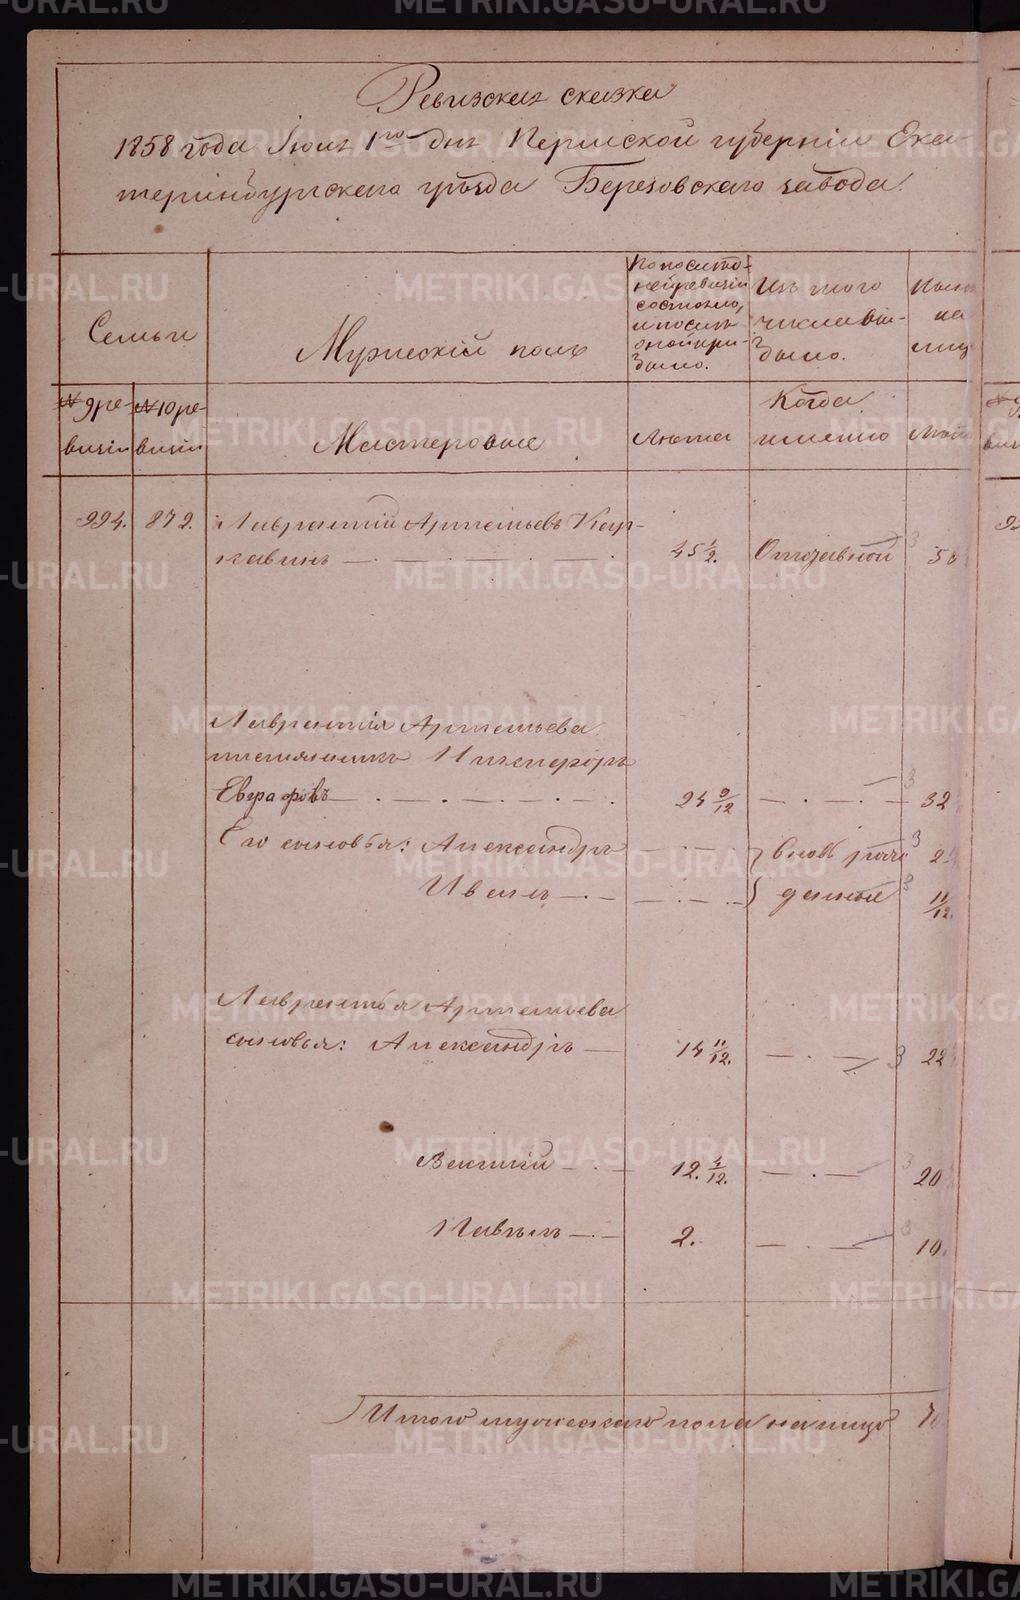 Ревизская сказка
1858 года Iюля 1го дня Пермской губернiи Ека-
теринбургскаго уѣзда Березовскаго завода.
Семьи
Мужескiй полъ
По послѣд-
ней ревизiи
состояло,
и послѣ
оной при-
было.
Изъ того
числа вы-
было.
Ныне
на
лиц
№ 9 ре-
визiи
№ 10 ре-
визiи
Мастеровые
Лѣта
Когда
именно
994. 872. Лаврентiй Артемьевъ Кар-
гавинъ 45 1/2. Отставной 3
Лаврентiя Артемьева
племянникъ Никифоръ
Евграфовъ 24 9/12 3 32
Его сыновья: Александръ вновь рож- 3 2
Иванъ денные 3 11/12.
Лаврентья Артемьева
сыновья: Александръ 14 11/12. 3 22
12. 4/12. 3 20
Павелъ 2. 10.
Итого мужескаго пола на лицо
METRIKI.GASO-URAL.RU